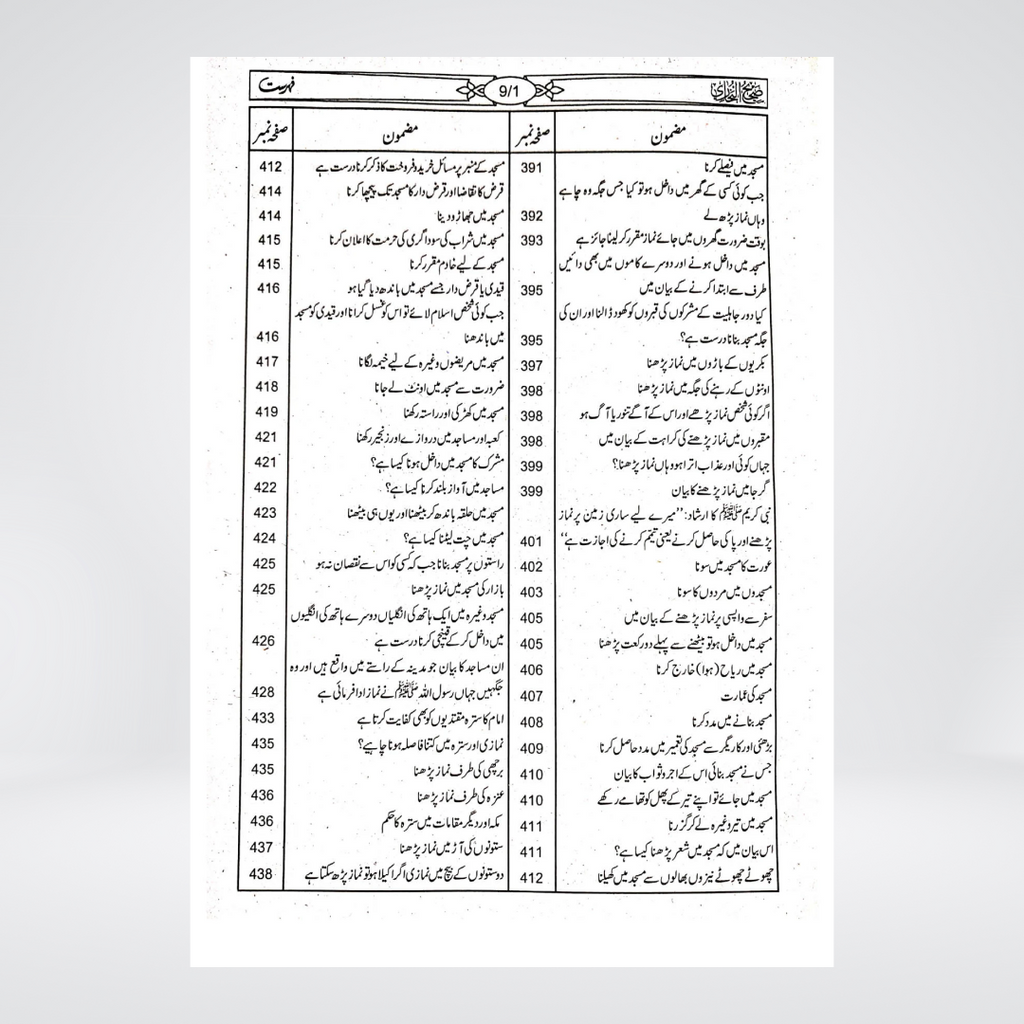 صحیح البخاری
9/1
فہرست
مضمون صفحہ نمبر
مسجد میں فیصلے کرنا 391
جب کوئی کسی کے گھر میں داخل ہو تو کیا جس جگہ وہ چاہے
وہاں نماز پڑھ لے 392
بوقت ضرورت گھروں میں جائے نماز مقرر کر لینا جائز ہے 393
مسجد میں داخل ہونے اور دوسرے کاموں میں بھی دائیں
طرف سے ابتدا کرنے کے بیان میں 395
کیا دور جاہلیت کے مشرکوں کی قبروں کو کھود ڈالنا اور ان کی
جگہ مسجد بنانا درست ہے؟ 395
بکریوں کے باڑوں میں نماز پڑھنا 397
اونٹوں کے رہنے کی جگہ میں نماز پڑھنا 398
اگر کوئی شخص نماز پڑھے اور اس کے آگے تنور یا آگ ہو 398
مقبروں میں نماز پڑھنے کی کراہت کے بیان میں 398
جہاں کوئی اور عذاب اترا ہو وہاں نماز پڑھنا؟ 399
گرجا میں نماز پڑھنے کا بیان 399
نبی کریم ﷺ کا ارشاد: ’’میرے لیے ساری زمین پر نماز
پڑھنے اور پاکی حاصل کرنے یعنی تیمم کرنے کی اجازت ہے‘‘ 401
عورت کا مسجد میں سونا 402
مسجدوں میں مردوں کا سونا 403
سفر سے واپسی پر نماز پڑھنے کے بیان میں 405
مسجد میں داخل ہو تو بیٹھنے سے پہلے دو رکعت پڑھنا 405
مسجد میں ریاح (ہوا) خارج کرنا 406
مسجد کی عمارت 407
مسجد بنانے میں مدد کرنا 408
بڑھئی اور کاریگر سے مسجد کی تعمیر میں مدد حاصل کرنا 409
جس نے مسجد بنائی اس کے اجر و ثواب کا بیان 410
مسجد میں جائے تو اپنے تیر کے پھل کو تھامے رکھے 410
مسجد میں تیر وغیرہ لے کر گزرنا 411
اس بیان میں کہ مسجد میں شعر پڑھنا کیسا ہے؟ 411
چھوٹے چھوٹے نیزوں بھالوں سے مسجد میں کھیلنا 412
مضمون صفحہ نمبر
مسجد کے منبر پر مسائل خرید و فروخت کا ذکر کرنا درست ہے 412
قرض کا تقاضا اور قرض دار کا مسجد تک پیچھا کرنا 414
مسجد میں جھاڑو دینا 414
مسجد میں شراب کی سوداگری کی حرمت کا اعلان کرنا 415
مسجد کے لیے خادم مقرر کرنا 415
قیدی یا قرض دار جسے مسجد میں باندھ دیا گیا ہو 416
جب کوئی شخص اسلام لائے تو اس کو غسل کرانا اور قیدی کو مسجد
میں باندھنا 416
مسجد میں مریضوں وغیرہ کے لیے خیمہ لگانا 417
ضرورت سے مسجد میں اونٹ لے جانا 418
مسجد میں کھڑکی اور راستہ رکھنا 419
کعبہ اور مساجد میں دروازے اور زنجیر رکھنا 421
مشرک کا مسجد میں داخل ہونا کیسا ہے؟ 421
مساجد میں آواز بلند کرنا کیسا ہے؟ 422
مسجد میں حلقہ باندھ کر بیٹھنا اور یوں ہی بیٹھنا 423
مسجد میں چت لیٹنا کیسا ہے؟ 424
راستوں پر مسجد بنانا جب کہ کسی کو اس سے نقصان نہ ہو 425
بازار کی مسجد میں نماز پڑھنا 425
مسجد وغیرہ میں ایک ہاتھ کی انگلیاں دوسرے ہاتھ کی انگلیوں
میں داخل کر کے قینچی کرنا درست ہے 426
ان مساجد کا بیان جو مدینہ کے راستے میں واقع ہیں اور وہ
جگہیں جہاں رسول اللہ ﷺ نے نماز ادا فرمائی ہے 428
امام کا سترہ مقتدیوں کو بھی کفایت کرتا ہے 433
نمازی اور سترہ میں کتنا فاصلہ ہونا چاہیے؟ 435
برچھی کی طرف نماز پڑھنا 435
عنزہ کی طرف نماز پڑھنا 436
مکہ اور دیگر مقامات میں سترہ کا حکم 436
ستونوں کی آڑ میں نماز پڑھنا 437
دو ستونوں کے بیچ میں نمازی اگر اکیلا ہو تو نماز پڑھ سکتا ہے 438